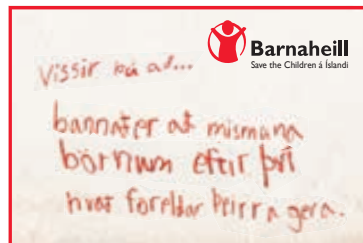 Barnaheill
Save the Children á Íslandi
Vissir þú að...
bannað er að mismuna
börnum eftir því
hvað foreldar þeirra gera.